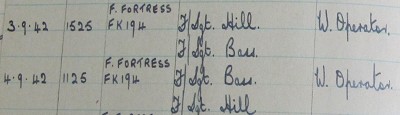 F. FORTRESS
3.9.42 1525 FK194 F/Sgt. Hill. W. Operator.
F/Sgt. Bass.
F. FORTRESS
4.9.42 1125 FK194 F/Sgt. Bass. W. Operator.
F/Sgt. Hill